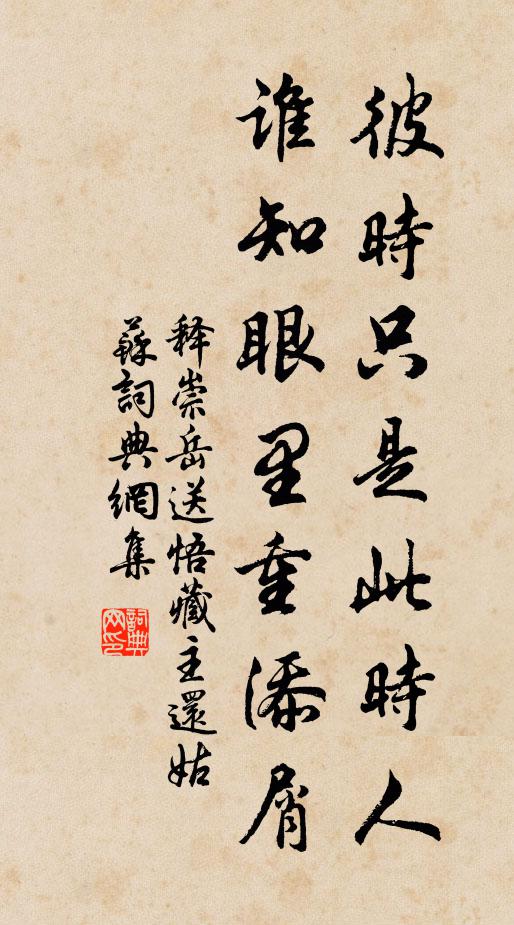 彼時只是此時人
誰知眼里重添屑
释崇岳送悟藏主還姑
蘇詞典網集
詞典网印